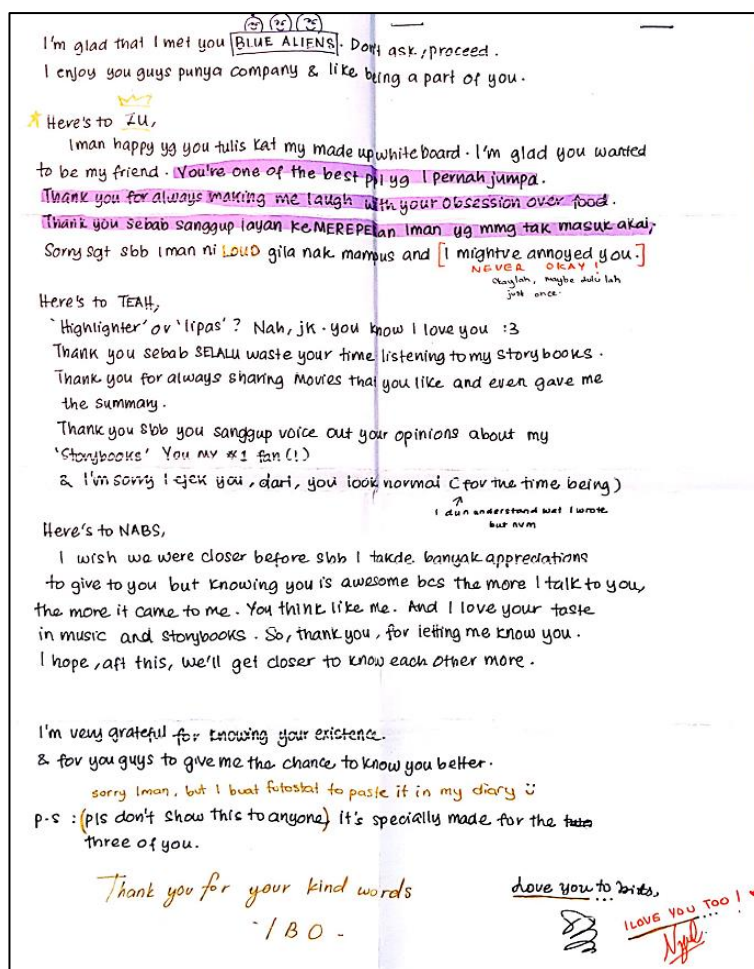 I'm glad that I met you BLUE ALIENS. Don't ask, proceed.
I enjoy you guys punya company & like being a part of you.
Here's to ZU,
Iman happy yg you tulis kat my made up whiteboard. I'm glad you wanted
to be my friend. You're one of the best ppl yg I pernah jumpa.
Thank you for always making me laugh with your obsession over food.
Thank you sebab sanggup layan keMEREPEKan Iman yg mmg tak masuk akal,
Sorry sgt sbb Iman ni LOUD gila nak mampus and [I might've annoyed you.]
NEVER OKAY!
Okaylah, maybe dulu lah
just once.
Here's to TEAH,
'Highlighter' or 'lipas'? Nah, jk. you know I love you :3
Thank you sebab SELALU waste your time listening to my storybooks.
Thank you for always sharing movies that you like and even gave me
the summary.
Thank you sbb you sanggup voice out your opinions about my
'Storybooks' You my #1 fan (!)
& I'm sorry I ejek you, dari, you look normal (for the time being)
I dun understand wat I wrote
but nvm
Here's to NABS,
I wish we were closer before sbb I takde banyak appreciations
to give to you but knowing you is awesome bcs the more I talk to you,
the more it came to me. You think like me. And I love your taste
in music and storybooks. So, thank you, for letting me know you.
I hope, aft this, we'll get closer to know each other more.
I'm very grateful for knowing your existence.
& for you guys to give me the chance to know you better.
sorry Iman, but I buat fotostat to paste it in my diary
p.s : (pls don't show this to anyone) it's specially made for the
three of you.
Thank you for your kind words
- I B O -
Love you to bits,
I LOVE YOU TOO!